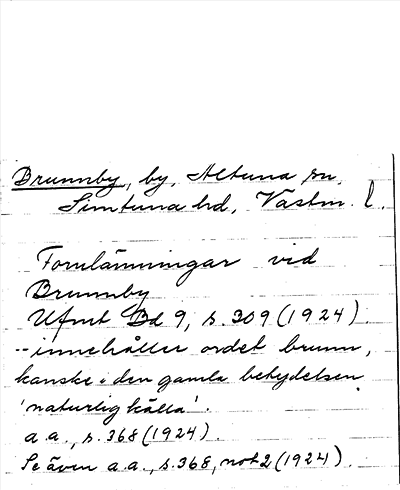 Brunnby, by, Altuna sn.
Simtuna hd, Västm. l.
Fornlämningar vid
Brunnby
Ufmt Bd 9, s. 309 (1924).
-- innehåller ordet brunn,
kanske i den gamla betydelsen
'naturlig källa'.
a.a., s. 368 (1924).
Se även a.a., s. 368, not 2 (1924).